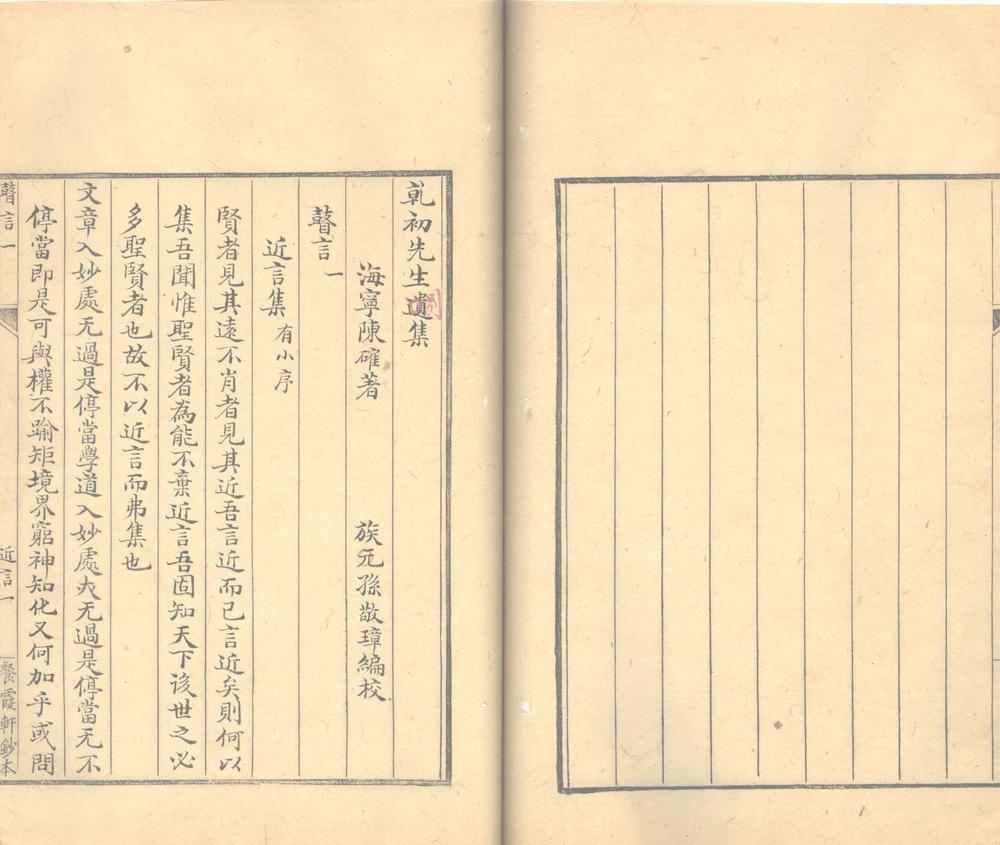 乹初先生遺集
海寧陳確著 族元孫敬璋編校
瞽言一
近言集 有小序
賢者見其遠不肖者見其近吾言近而已言近矣則何以
集吾聞惟聖賢者為能不棄近言吾固知天下後世之必
多聖賢者也故不以近言而弗集也
文章入妙處无過是停當學道入妙處亦无過是停當无不
停當即是可與權不踰矩境界窮神知化又何加乎或問
瞽言一 近言一 餐霞軒鈔本